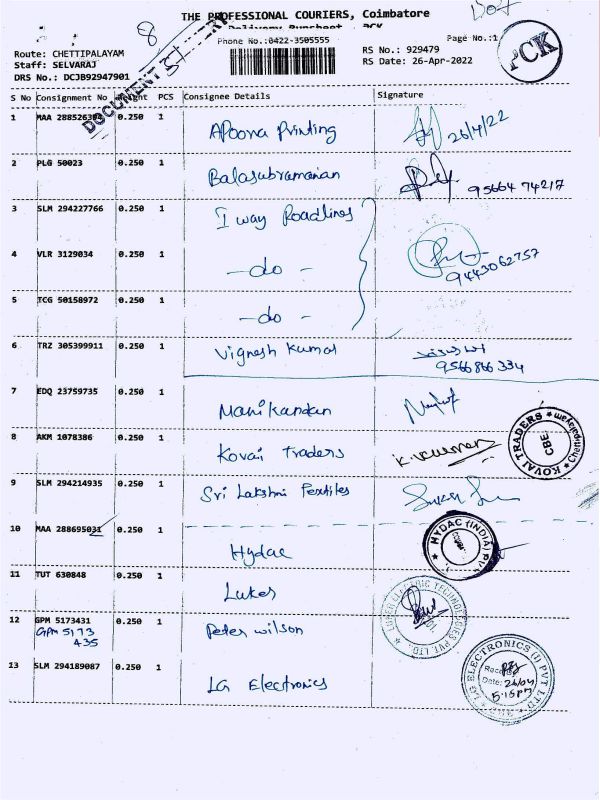 THE PROFESSIONAL COURIERS, Coimbatore
PCK
8
Phone No.:0422-3505555
Page No.:1
Route: CHETTIPALAYAM
RS No.: 929479
Staff: SELVARAJ
RS Date: 26-Apr-2022
DRS No.: DCJB92947901
PCK
S No Consignment No PCS Consignee Details Signature
1 0.250 1 APoorva Printing 26/4/22
2 PLG 50023 0.250 1 Balasubramanian 95664 74217
3 SLM 294227766 0.250 1 I way Roadlines
4 VLR 3129034 0.250 1 -do- 9443062757
5 TCG 50158972 0.250 1 -do-
6 TRZ 305399911 0.250 1 Vignesh Kumar
9566866334
7 EDQ 23759735 0.250 1 Manikandan
8 AKM 1078386 0.250 1 Kovai Traders K.Kumar
KOVAI TRADERS CBE
9 SLM 294214935 0.250 1 Sri Lakshmi Textiles
10 MAA 288695031 0.250 1 Hydac
HYDAC (INDIA) PVT
11 TUT 630848 0.250 1 Lukes
ELECTRIC TECHNOLOGIES PVT LTD.
12 GPM 5173431 0.250 1 Peter wilson
GPM 5173
435
13 SLM 294189087 0.250 1 LG Electronics
LG ELECTRONICS (I) PVT LTD
Date: 26/04
5.15pm